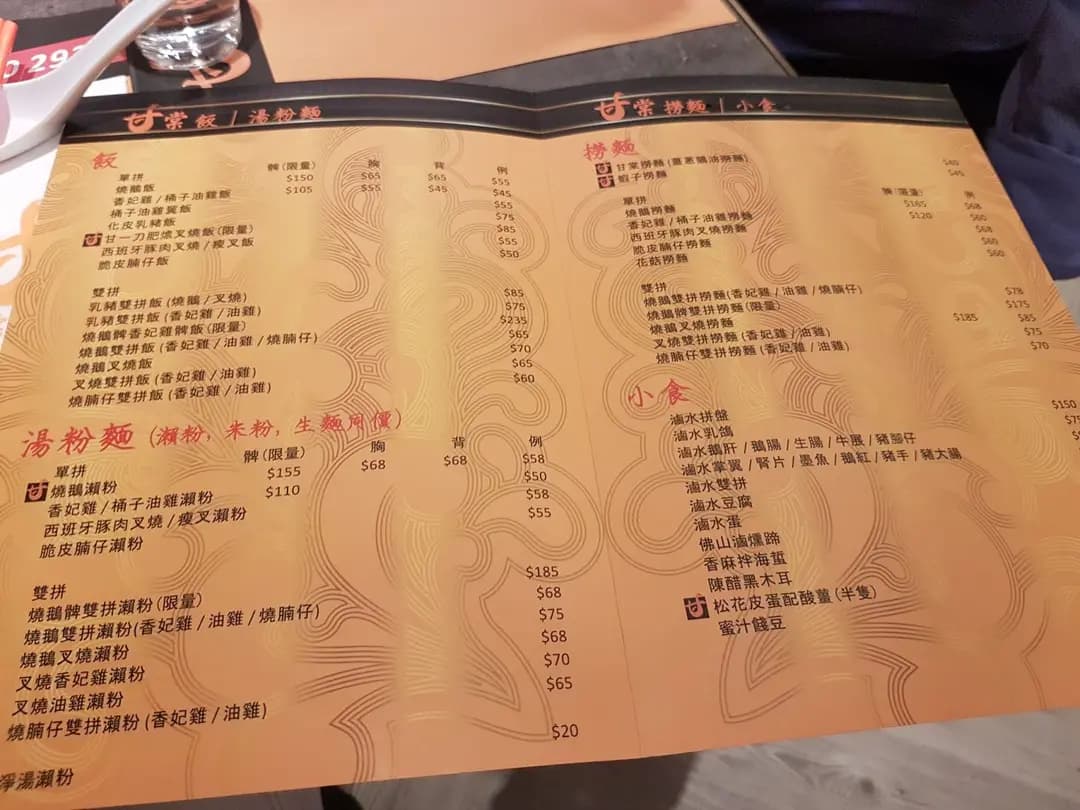 0 292
甘棠 飯 / 湯粉麵
飯
單拼 髀(限量) 胸 背 例
燒鵝飯 $150 $65 $65 $55
香妃雞 / 桶子油雞飯 $105 $55 $45 $45
桶子油雞翼飯 $55
化皮乳豬飯 $75
甘一刀肥燶叉燒飯(限量) $85
西班牙豚肉叉燒 / 瘦叉飯 $55
脆皮腩仔飯 $50
雙拼
乳豬雙拼飯 (燒鵝 / 叉燒) $85
乳豬雙拼飯 (香妃雞 / 油雞) $75
燒鵝髀香妃雞髀飯(限量) $235
燒鵝雙拼飯 (香妃雞 / 油雞 / 燒腩仔) $65
燒鵝叉燒飯 $70
叉燒雙拼飯 (香妃雞 / 油雞) $65
燒腩仔雙拼飯 (香妃雞 / 油雞) $60
湯粉麵 (瀨粉, 米粉, 生麵同價)
單拼 髀(限量) 胸 背 例
甘 燒鵝瀨粉 $155 $68 $68 $58
香妃雞 / 桶子油雞瀨粉 $110 $50
西班牙豚肉叉燒 / 瘦叉瀨粉 $58
脆皮腩仔瀨粉 $55
雙拼
燒鵝髀雙拼瀨粉(限量) $185
燒鵝雙拼瀨粉(香妃雞 / 油雞 / 燒腩仔) $68
燒鵝叉燒瀨粉 $75
叉燒香妃雞瀨粉 $68
叉燒油雞瀨粉 $70
燒腩仔雙拼瀨粉 (香妃雞 / 油雞) $65
淨湯瀨粉 $20
甘棠 撈麵 | 小食
撈麵
甘 甘棠撈麵(薑蔥鵝油撈麵) $40
甘 蝦子撈麵 $45
單拼 髀(限量) 例
燒鵝撈麵 $165 $68
香妃雞 / 桶子油雞撈麵 $120 $60
西班牙豚肉叉燒撈麵 $68
脆皮腩仔撈麵 $60
花菇撈麵 $60
雙拼
燒鵝雙拼撈麵(香妃雞 / 油雞 / 燒腩仔) $78
燒鵝髀雙拼撈麵(限量) $185 $175
燒鵝叉燒撈麵 $85
叉燒雙拼撈麵 (香妃雞 / 油雞) $75
燒腩仔雙拼撈麵 (香妃雞 / 油雞) $70
小食
滷水拼盤 $150
滷水乳鴿
滷水鵝肝 / 鵝腸 / 生腸 / 牛展 / 豬腳仔
滷水掌翼 / 腎片 / 墨魚 / 鵝紅 / 豬手 / 豬大腸
滷水雙拼
滷水豆腐
滷水蛋
佛山滷燻蹄
香麻拌海蜇
陳醋黑木耳
甘 松花皮蛋配酸薑 (半隻)
蜜汁餞豆